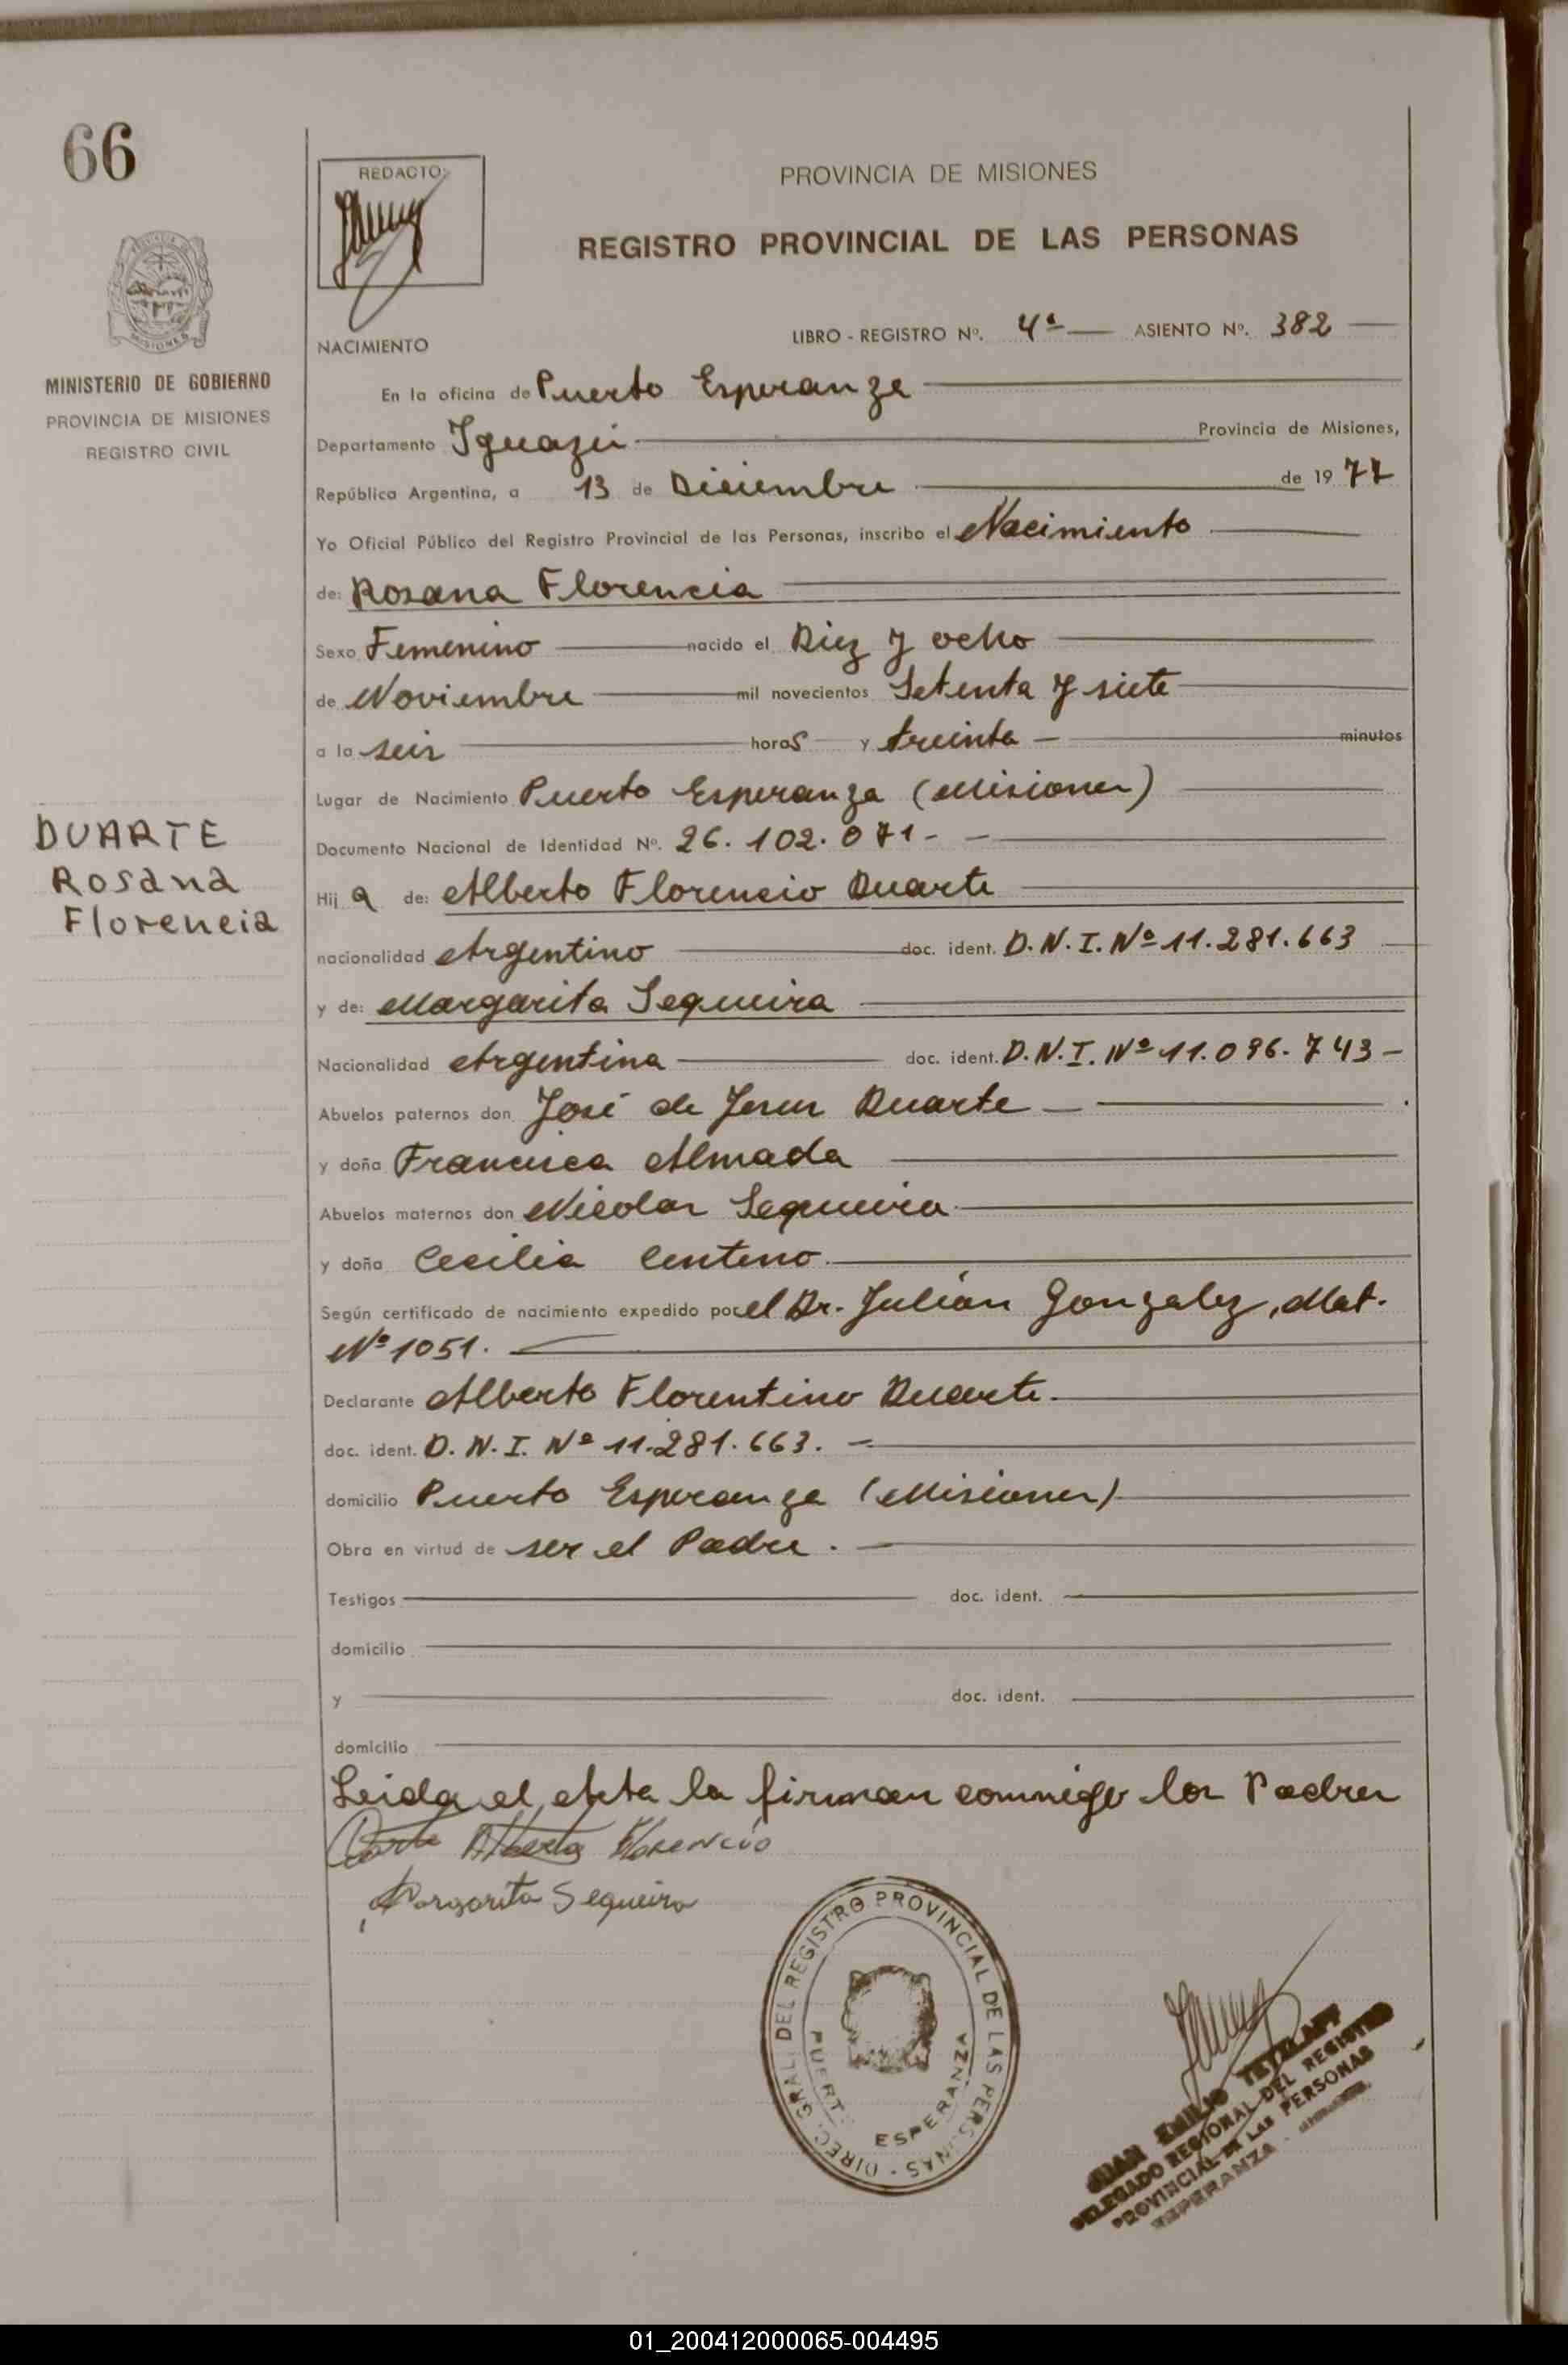 66
REDACTO:
PROVINCIA DE MISIONES
REGISTRO PROVINCIAL DE LAS PERSONAS
MINISTERIO DE GOBIERNO
PROVINCIA DE MISIONES
REGISTRO CIVIL
LIBRO - REGISTRO Nº. 4º ASIENTO Nº. 382
NACIMIENTO
En la oficina de Puerto Esperanza
Departamento Iguazú Provincia de Misiones,
República Argentina, a 13 de Diciembre de 1977
Yo Oficial Público del Registro Provincial de las Personas, inscribo el Nacimiento
de: Rosana Florencia
Sexo Femenino nacido el Diez y ocho
de Noviembre mil novecientos Setenta y siete
a la seis horas y treinta minutos
Lugar de Nacimiento Puerto Esperanza (Misiones)
Documento Nacional de Identidad Nº. 26.102.071-
DUARTE
Rosana
Florencia
Hij a de: Alberto Florencio Duarte
nacionalidad Argentino doc. ident. D.N.I. Nº 11.281.663
y de: Margarita Sequeira
Nacionalidad Argentina doc. ident. D.N.I. Nº 11.096.743-
Abuelos paternos don José de Jesus Duarte
y doña Francisca Almada
Abuelos maternos don Nicolas Sequeira
y doña Cecilia Centeno
Según certificado de nacimiento expedido por el Dr. Julián Gonzalez, Mat.
Nº 1051.
Declarante Alberto Florentino Duarte.
doc. ident. D.N.I. Nº 11.281.663.
domicilio Puerto Esperanza (Misiones)
Obra en virtud de ser el Padre.
Testigos doc. ident.
domicilio
y doc. ident.
domicilio
Leida el Acta la firman conmigo los Padres
Alberto Florencio
Margarita Sequeira
DIREC. GRAL. DEL REGISTRO PROVINCIAL DE LAS PERSONAS
PUERTO ESPERANZA
JUAN EMILIO
DELEGADO REGIONAL DEL REGISTRO
PROVINCIAL DE LAS PERSONAS
ESPERANZA
01_200412000065-004495